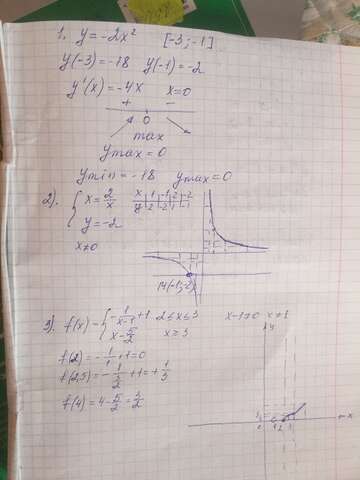 1. y = -2x² [-3; -1]
y(-3) = -18 y(-1) = -2
y'(x) = -4x x=0
+ -
0
max
ymax = 0
ymin = -18 ymax = 0
2). { x = 2/x
y = -2
x≠0
x 1 -1 2 -2
y 2 -2 1 -1
M(-1;-2)
3). f(x) = { -1/(x-1) + 1 2 ≤ x ≤ 3
x - 5/2 x ≥ 3
x-1≠0 x≠1
f(2) = -1/1 + 1 = 0
f(2,5) = -1/(3/2) + 1 = +1/3
f(4) = 4 - 5/2 = 3/2
y
x